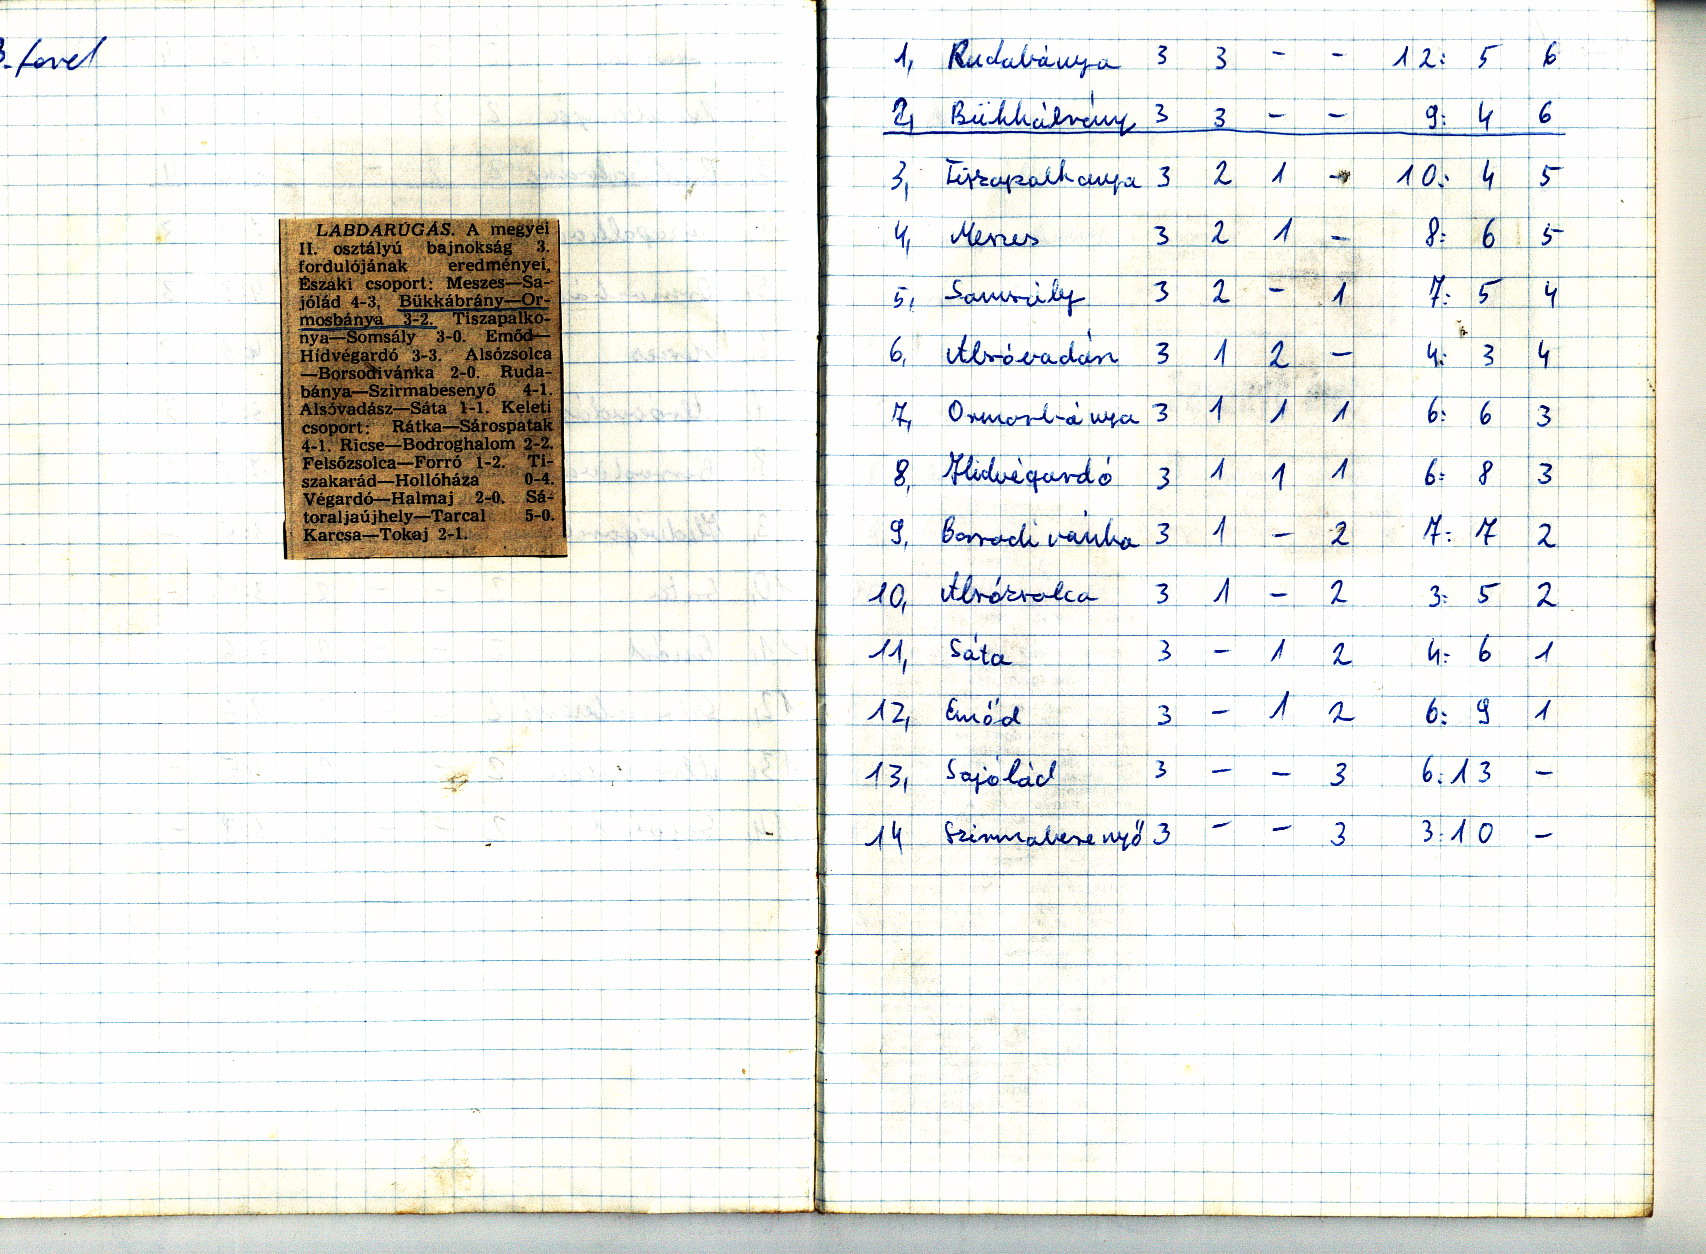 3. ford
LABDARÚGÁS. A megyei
II. osztályú bajnokság 3.
fordulójának eredményei,
Északi csoport: Meszes—Sa-
jólád 4-3. Bükkábrány—Or-
mosbánya 3-2. Tiszapalko-
nya—Somsály 3-0. Emőd—
Hídvégardó 3-3. Alsózsolca
—Borsodivánka 2-0. Ruda-
bánya—Szirmabesenyő 4-1.
Alsóvadász—Sáta 1-1. Keleti
csoport: Rátka—Sárospatak
4-1. Ricse—Bodroghalom 2-2.
Felsőzsolca—Forró 1-2. Ti-
szakarád—Hollóháza 0-4.
Végardó—Halmaj 2-0. Sá-
toraljaújhely—Tarcal 5-0.
Karcsa—Tokaj 2-1.
1, Rudabánya 3 3 - - 12: 5 6
2, Bükkábrány 3 3 - - 9: 4 6
3, Tiszapalkonya 3 2 1 - 10: 4 5
4, Meszes 3 2 1 - 8: 6 5
5, Somsály 3 2 - 1 7: 5 4
6, Alsóvadász 3 1 2 - 4: 3 4
7, Ormosbánya 3 1 1 1 6: 6 3
8, Hídvégardó 3 1 1 1 6: 8 3
9, Borsodivánka 3 1 - 2 7: 7 2
10, Alsózsolca 3 1 - 2 3: 5 2
11, Sáta 3 - 1 2 4: 6 1
12, Emőd 3 - 1 2 6: 9 1
13, Sajólád 3 - - 3 6:13 -
14 Szirmabesenyő 3 - - 3 3:10 -